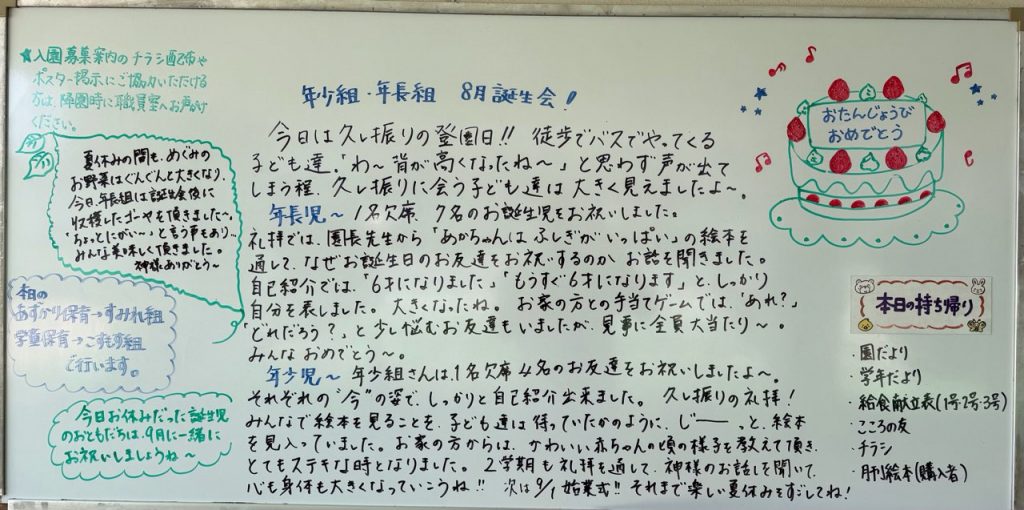 ★入園募集案内のチラシ配布や
ポスター掲示にご協力いただける
方は、降園時に職員室へお声がけ
ください。
夏休みの間も、めぐみの
お野菜はぐんぐんと大きくなり、
今日、年長組は誕生会後に
収穫したゴーヤを頂きました〜。
「ちょっとにがい…」と言う声もあり…
みんな美味しく頂きました。
神様ありがとう〜
本日の
あずかり保育→すみれ組
学童保育→こすもす組
で行います。
今日お休みだった誕生児
のおともだちは、9月に一緒に
お祝いしましょうね〜
年少組・年長組 8月誕生会!
今日は久し振りの登園日!! 徒歩でバスでやってくる
子ども達。「わ〜背が高くなったね〜」と思わず声が出て
しまう程、久し振りに会う子ども達は大きく見えましたよ〜。
年長児〜1名欠席、7名のお誕生児をお祝いしました。
礼拝では、園長先生から「あかちゃんはふしぎがいっぱい」の絵本を
通して、なぜお誕生日のお友達をお祝いするのかお話を聞きました。
自己紹介では、「6才になりました」「もうすぐ6才になります」と、しっかり
自分を表しました。大きくなったね。お家の方との手当てゲームでは、「あれ?」
「どれだろう?」と少し悩むお友達もいましたが、見事に全員大当たり〜。
みんなおめでとう〜。
年少児〜 年少組さんは、1名欠席4名のお友達をお祝いしましたよ〜。
それぞれの“今”の姿で、しっかりと自己紹介出来ました。久し振りの礼拝!
みんなで絵本を見ることを、子ども達は待っていたかのように、じーーっと、絵本
を見入っていました。お家の方からは、かわいい赤ちゃんの頃の様子を教えて頂き、
とてもステキな時となりました。2学期も礼拝を通して、神様のお話しを聞いて、
心も身体も大きくなっていこうね!! 次は9/1始業式!! それまで楽しい夏休みをすごしてね!
おたんじょうび
おめでとう
本日の持ち帰り
・園だより
・学年だより
・給食献立表(1号・2号・3号)
・こころの友
・チラシ
・月刊絵本(購入者)